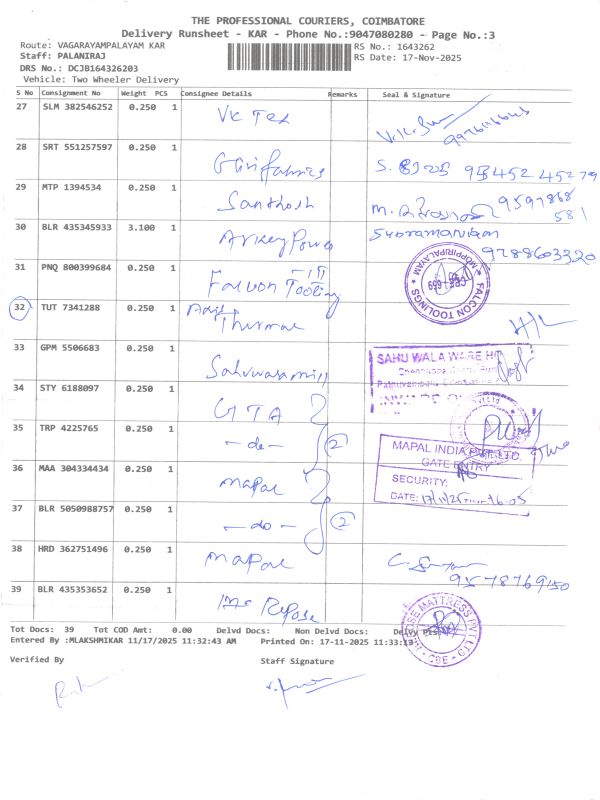 THE PROFESSIONAL COURIERS, COIMBATORE
Delivery Runsheet - KAR - Phone No.:9047080280 - Page No.:3
Route: VAGARAYAMPALAYAM KAR RS No.: 1643262
Staff: PALANIRAJ RS Date: 17-Nov-2025
DRS No.: DCJB164326203
Vehicle: Two Wheeler Delivery
S No Consignment No Weight PCS Consignee Details Remarks Seal & Signature
27 SLM 382546252 0.250 1 VK Tex
28 SRT 551257597 0.250 1 Giri fabrics
29 MTP 1394534 0.250 1 Santhosh
30 BLR 435345933 3.100 1 Arkey Power Subramaniam 9788603320
31 PNQ 800399684 0.250 1 Falcon Tooling FALCON TOOLINGS MOPPIRIPALAYAM
32 TUT 7341288 0.250 1 Thermal
33 GPM 5506683 0.250 1 SAHU WALA WARE
34 STY 6188097 0.250 1 GTA
35 TRP 4225765 0.250 1 - do - 2
MAPAL INDIA PVT. LTD.
GATE ENTRY
36 MAA 304334434 0.250 1 mapal
SECURITY:
DATE: 17/11/25
37 BLR 5050988757 0.250 1 - do - 2
38 HRD 362751496 0.250 1 mapal 9578769150
39 BLR 435353652 0.250 1 Repose
MATTRESS PVT LTD
CBE
Tot Docs: 39 Tot COD Amt: 0.00 Delvd Docs: Non Delvd Docs:
Entered By :MLAKSHMIKAR 11/17/2025 11:32:43 AM Printed On: 17-11-2025
Verified By Staff Signature